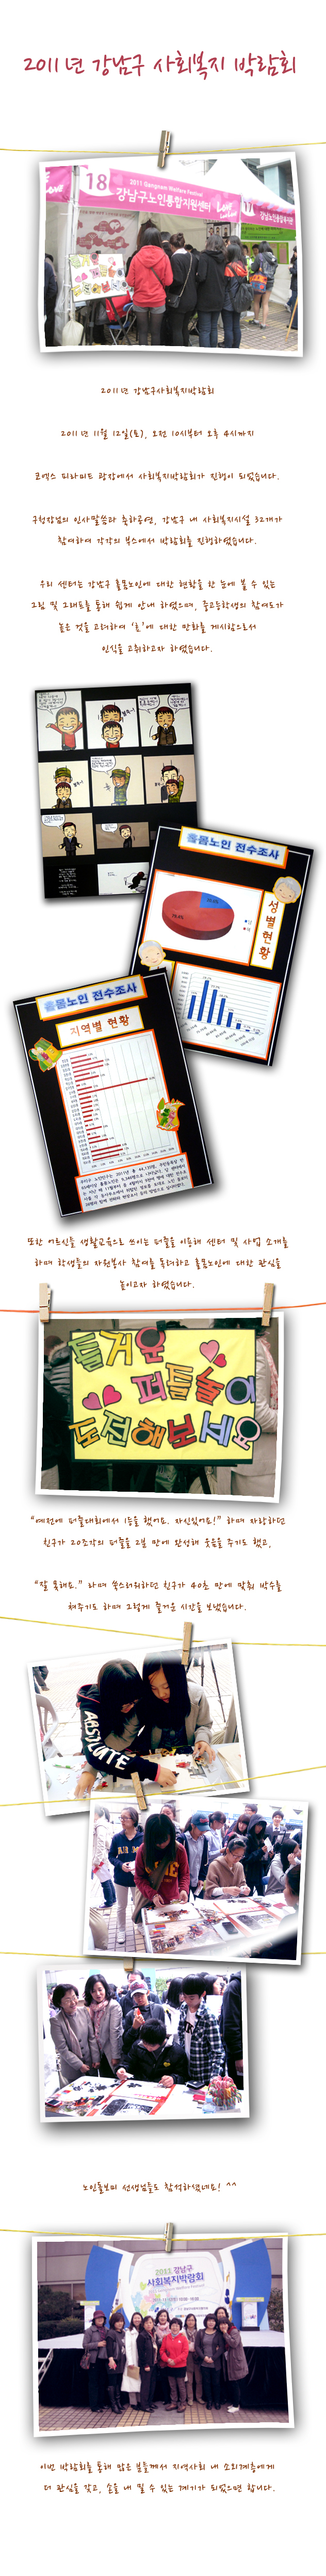 2011년 강남구 사회복지 박람회
18
2011 Gangnam Welfare Festival
강남구노인통합지원센터
17
2011년 강남구사회복지박람회
2011년 11월 12일(토), 오전 10시부터 오후 4시까지
코엑스 피라미드 광장에서 사회복지박람회가 진행이 되었습니다.
구청장님의 인사말씀과 축하공연, 강남구 내 사회복지시설 32개가
참여하여 각각의 부스에서 박람회를 진행하였습니다.
우리 센터는 강남구 홀몸노인에 대한 현황을 한 눈에 볼 수 있는
그림 및 그래프를 통해 쉽게 안내 하였으며, 중고등학생의 참여도가
높은 것을 고려하여 ‘효’에 대한 만화를 게시함으로서
인식을 고취하고자 하였습니다.
홀몸노인 전수조사
성별현황
홀몸노인 전수조사
지역별 현황
또한 어르신들 생활교육으로 쓰이는 퍼즐을 이용해 센터 및 사업 소개를
하며 학생들의 자원봉사 참여를 독려하고 홀몸노인에 대한 관심을
높이고자 하였습니다.
즐거운
퍼즐놀이
도전해보세요
“예전에 퍼즐대회에서 1등을 했어요. 자신있어요!” 하며 자랑하던
친구가 20조각의 퍼즐을 2분 만에 완성해 웃음을 주기도 했고,
“잘 못해요.” 라며 쑥스러워하던 친구가 40초 만에 맞춰 박수를
쳐주기도 하며 그렇게 즐거운 시간을 보냈습니다.
ABSOLUTE
노인돌보미 선생님들도 참석하셨네요! ^^
2011 강남구
사회복지박람회
이번 박람회를 통해 많은 분들께서 지역사회 내 소외계층에게
더 관심을 갖고, 손을 내 밀 수 있는 계기가 되었으면 합니다.